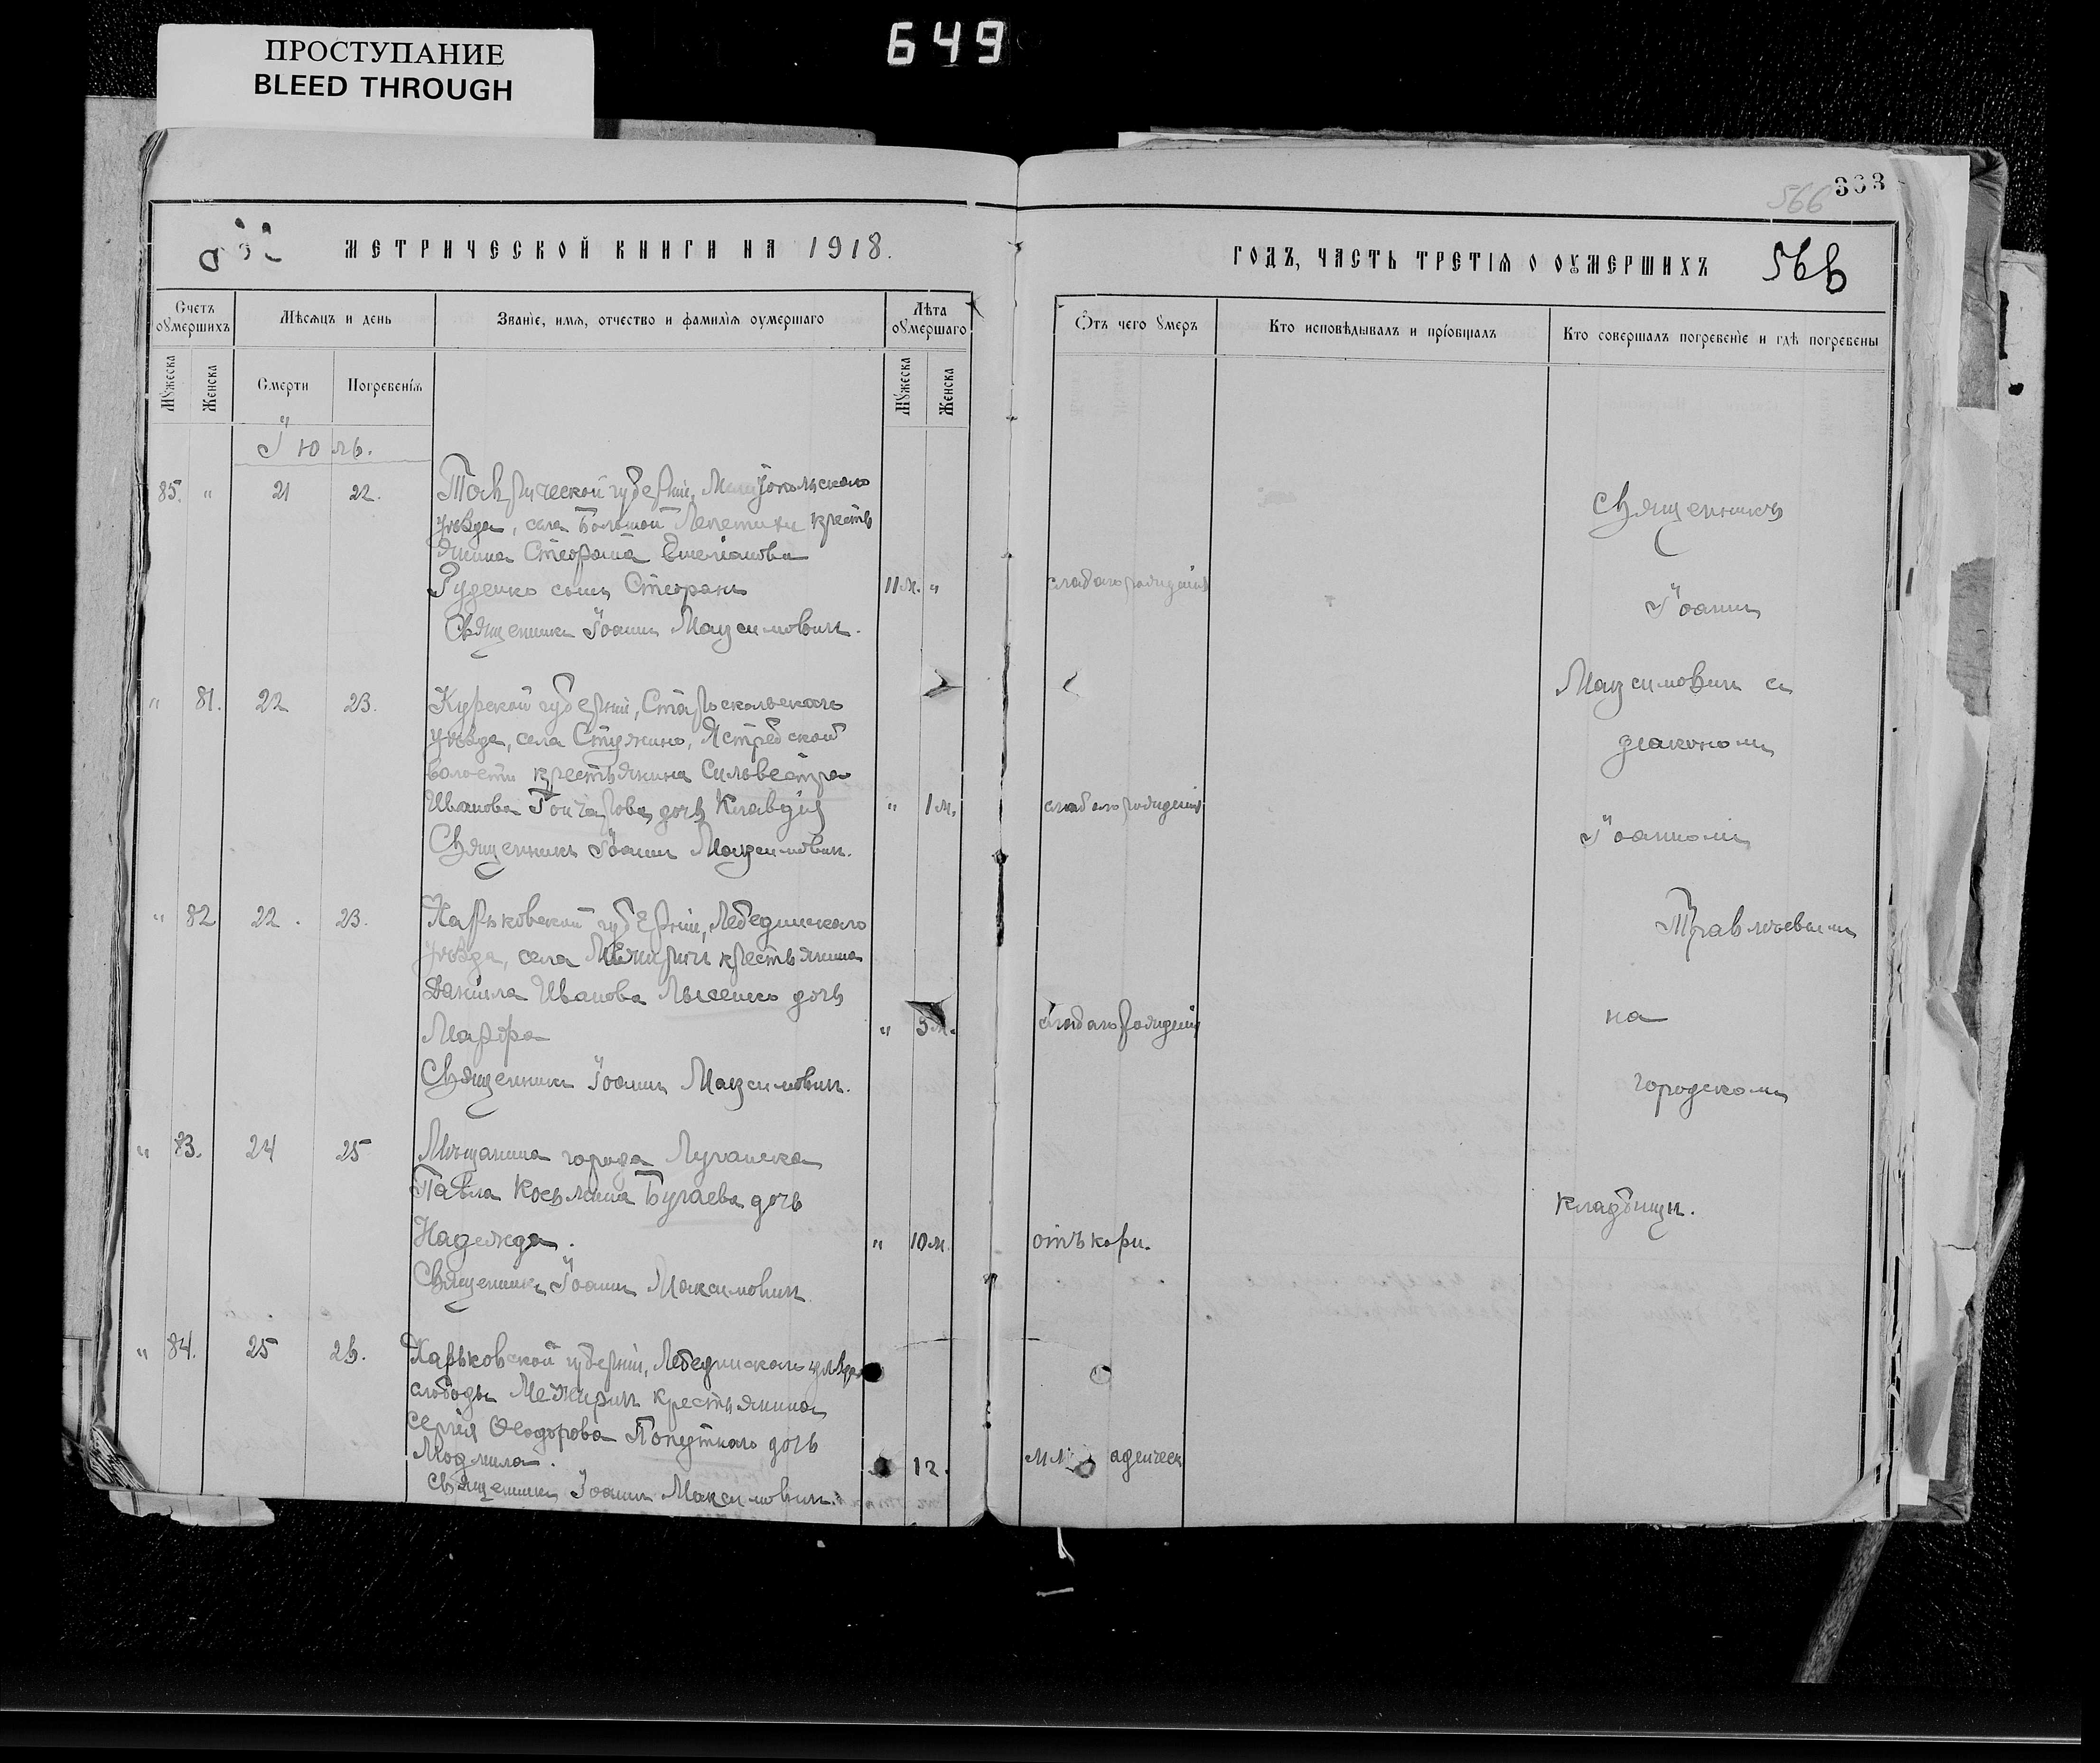 ПРОСТУПАНИЕ
BLEED THROUGH
649
363
566
МЕТРИЧЕСКОЙ КНИГИ НА 1918.
ГОДЪ, ЧАСТЬ ТРЕТІЯ О ОУМЕРШИХЪ 566
Счетъ оумершихъ
Мѣсяцъ и день
Званіе, имя, отчество и фамилія оумершаго
Лѣта оумершаго
Отъ чего умеръ
Кто исповѣдывалъ и пріобщалъ
Кто совершалъ погребеніе и гдѣ погребены
Мужеска
Женска
Смерти
Погребенія
Мужеска
Женска
Іюль.
85. " 21 22.
Таврической губерніи, Мелитопольскаго
уѣзда, села Большой Лепетихи кресть
янина Стефана Емеліанова
Руденко сынъ Стефанъ 11 м. " слабаго рожденія
Священникъ Іоаннъ Максимович.
" 81. 22 23.
Курской губерніи, Староскольскаго
уѣзда, села Стужино, Ястребской
волости крестьянина Сильвестра
Иванова Гончарова дочь Клавдія " 1 м. слабаго рожденія
Священникъ Іоаннъ Максимович.
" 82 22. 23.
Харьковской губерніи, Лебединскаго
уѣзда, села Межиричи крестьянина
Даніила Иванова Лысенко дочь
Марфа " 5 м. слабаго рожденія
Священникъ Іоаннъ Максимович.
" 83. 24 25
Мѣщанина города Луганска
Павла Косьмина Бугаева дочь
Надежда. " 10 м. отъ кори.
Священникъ Іоаннъ Максимович
" 84. 25 26.
Харьковской губерніи, Лебединскаго уѣзда
слободы Межирич крестьянина
Сергія Ѳеодорова Попутнаго дочь
Людмила. 12.
Священникъ Іоаннъ Максимович.
Священникъ
Іоаннъ
Максимович съ
діакономъ
Іоанномъ
на
городскомъ
кладбищи.